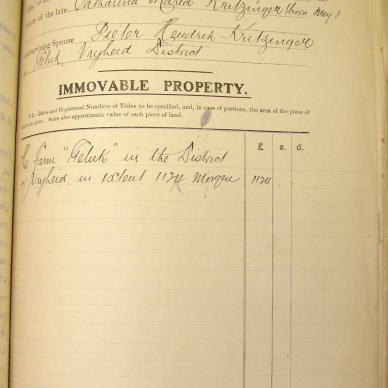 of the late Catharina Maria Kritzinger (born Meij)
Surviving Spouse Pieter Hendrik Kritzinger
Geluk, Vryheid District
IMMOVABLE PROPERTY.
N.B.—Dates and Registered Numbers of Titles to be specified, and, in case of portions, the area of the piece of
to be given. State also approximate value of each piece of land.
£ s. d.
The farm "Geluk" in the District
of Vryheid in extent 1174 Morgen 1174